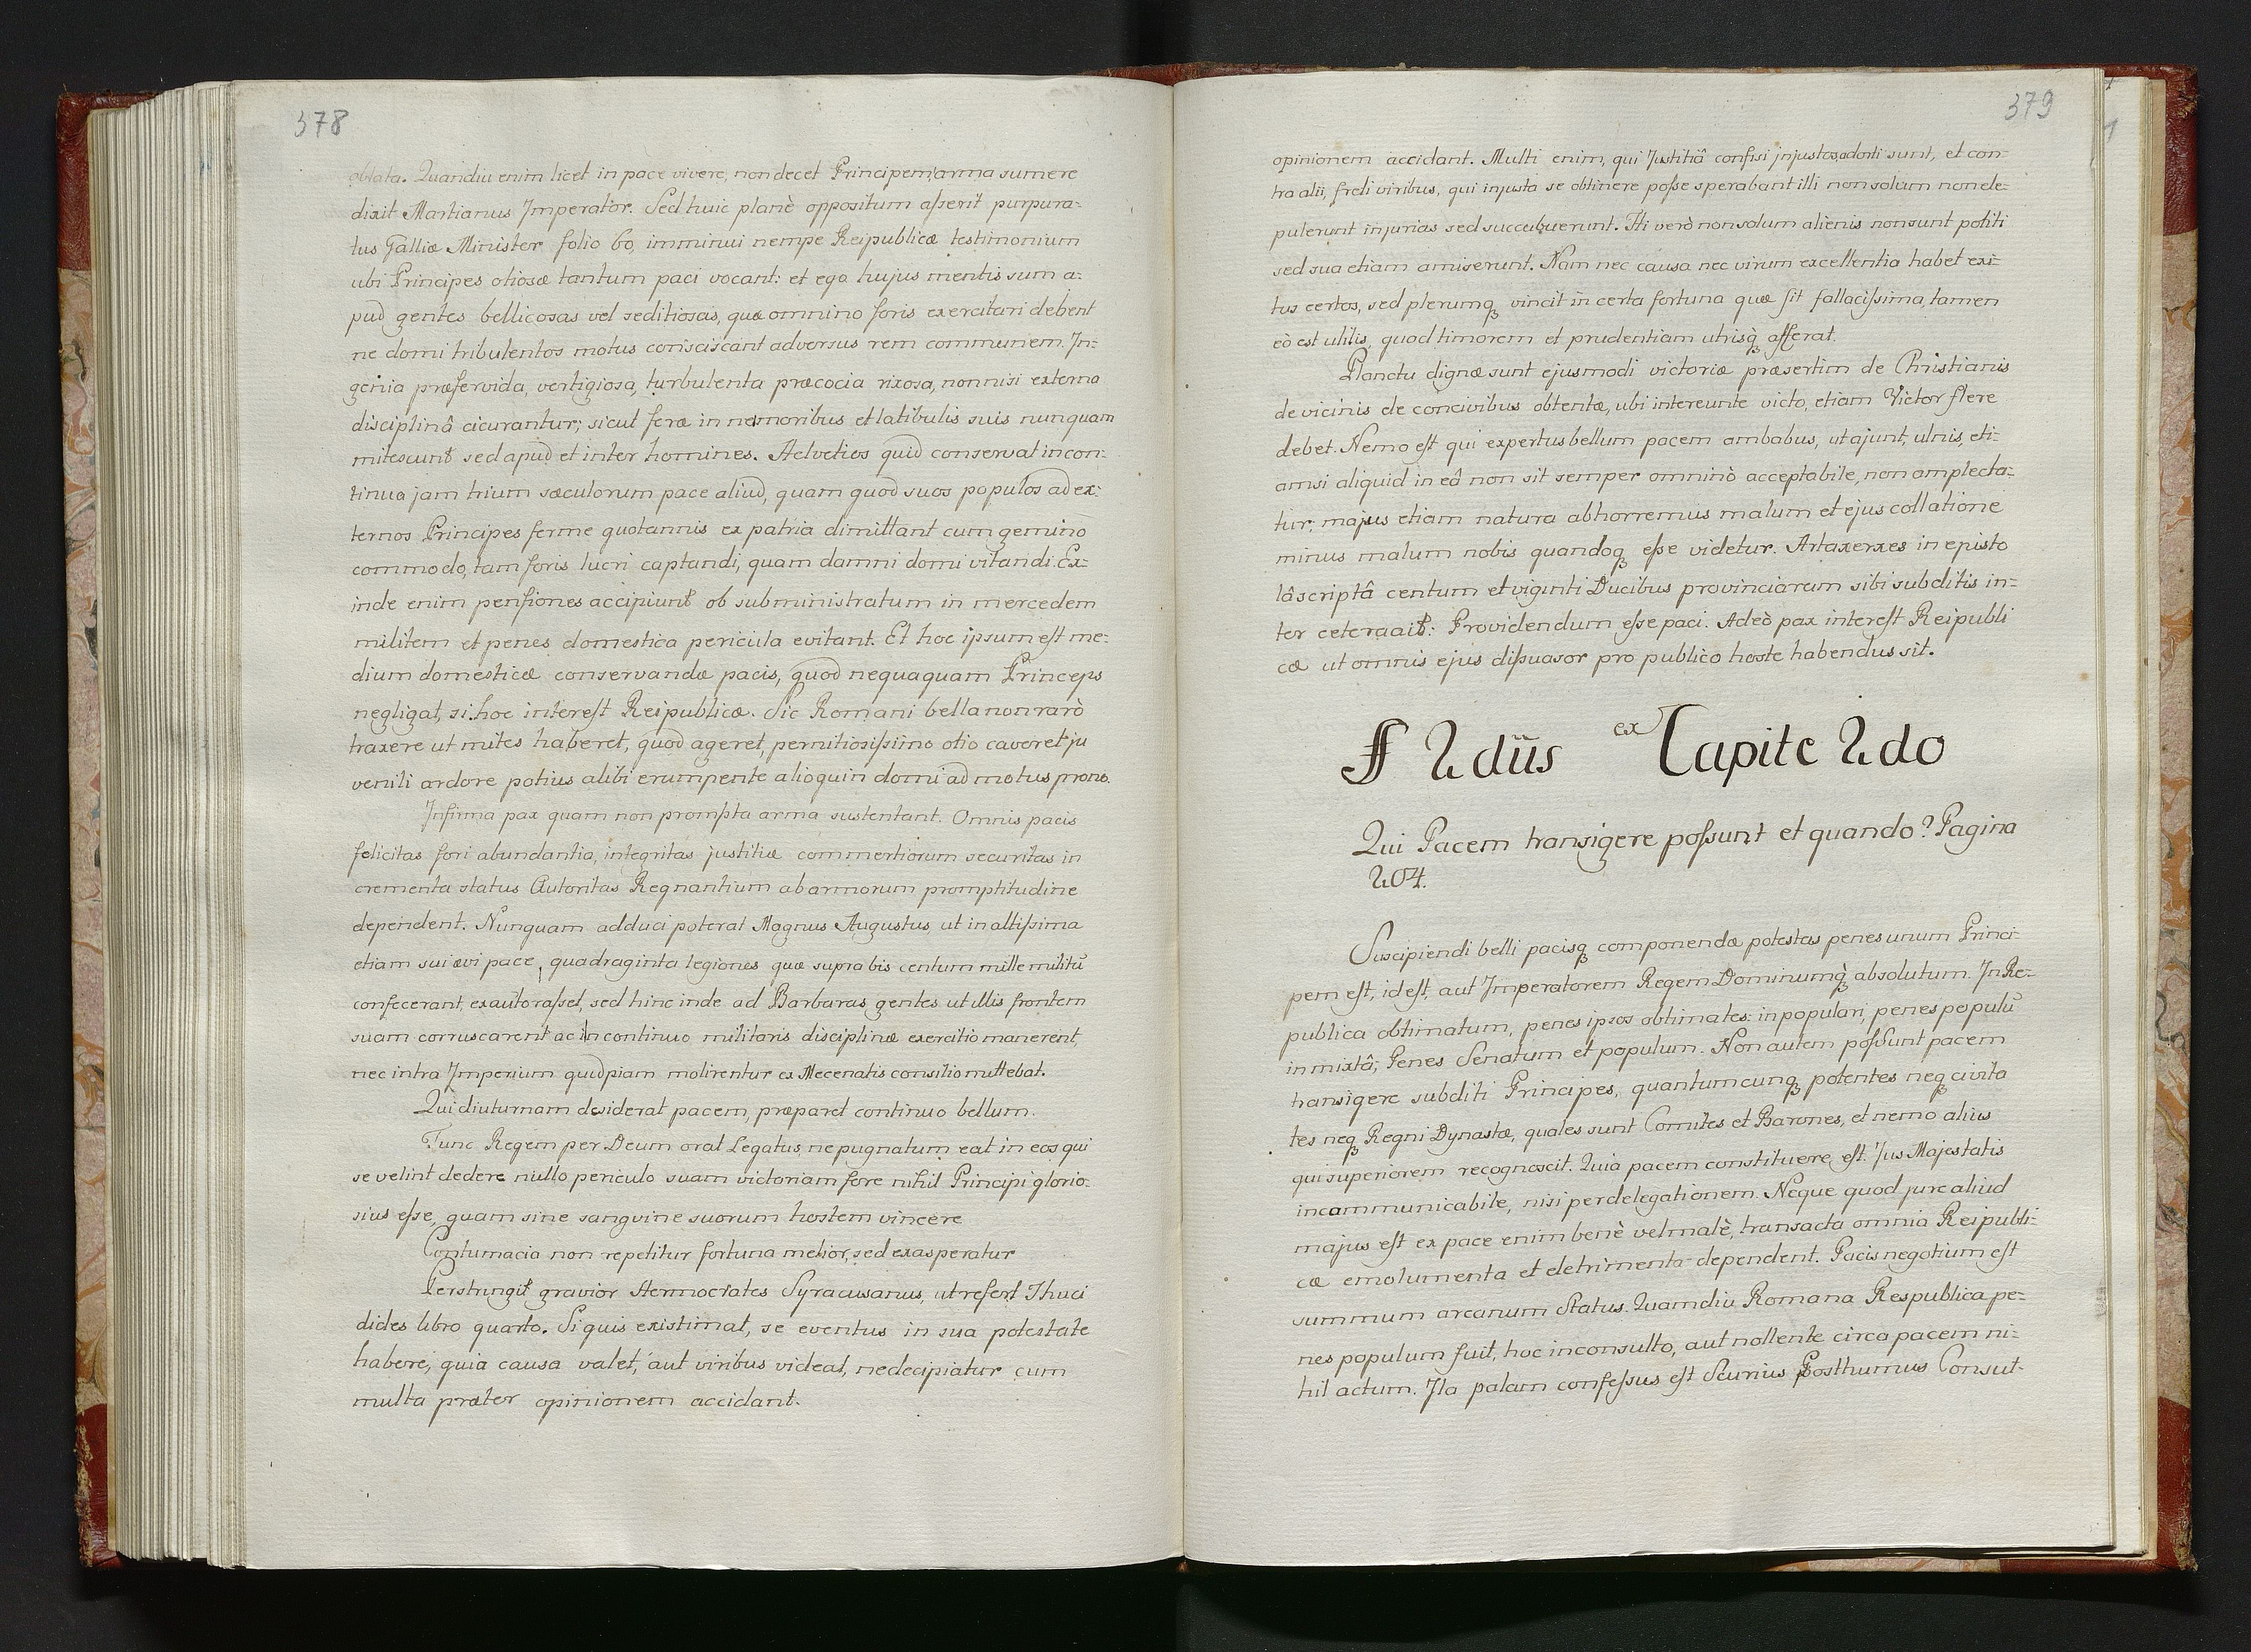 378
oblata. Quandiu enim licet in pace vivere, non decet Principem, arma sumere
dixit Martianus Imperator. Sed huic planè oppositum asserit purpura-
tus Galliæ Minister folio 60, imminui nempe Reipublicæ testimonium
ubi Principes otiosæ tantum paci vocant: et ego hujus mentis sum a-
pud gentes bellicosas vel seditiosas, quæ omnino foris exercitari debent
ne domi tribulentos motus consciscant adversus rem communem. In-
genia præfervida, vertigiosa, turbulenta præcocia rixosa, nonnisi externa
disciplinâ cicurantur; sicut feræ in nemoribus et latibulis suis nunquam
mitescunt sed apud et inter homines. Helvetios quid conservat in con-
tinua jam trium sæculorum pace aliud, quam quod suos populos ad ex-
ternos Principes ferme quotannis ex patria dimittant cum gemino
commodo, tam foris lucri captandi, quam damni domi vitandi. Ex-
inde enim pensiones accipiunt ob subministratum in mercedem
militem et penes domestica pericula evitant. Et hoc ipsum est me-
dium domesticæ conservandæ pacis, quod nequaquam Princeps
negligat, si hoc interest Reipublicæ. Sic Romani bella non rarò
traxere ut mites haberet, quod ageret, pernitiosissimo otio caveret ju
venili ardore potius alibi erumpente alioquin domi ad motus prono.
Infirma pax quam non prompta arma sustentant. Omnis pacis
felicitas fori abundantia, integritas justitiæ commertiorum securitas in
crementa status Autoritas Regnantium ab armorum promptitudine
dependent. Nunquam adduci poterat Magnus Augustus, ut in altissima
etiam sui ævi pace, quadraginta legiones quæ supra bis centum mille militū
confecerant, exautorasset, sed hinc inde ad Barbaras gentes ut illis frontem
suam corruscarent ac in continuo militaris disciplinæ exercitio manerent,
nec intra Imperium quidpiam molirentur ex Mecenatis consilio mittebat.
Qui diuturnam desiderat pacem, præparet continuo bellum.
Tunc Regem per Deum orat Legatus, ne pugnatum eat in eos qui
se velint dedere nullo periculo suam victoriam fore nihil Principi glorio-
sius esse, quam sine sanguine suorum hostem vincere
Contumacia non repetitur fortuna melior, sed exasperatur
Perstringit gravior Hermocrates Syracusanus, ut refert Thuci
dides libro quarto. Si quis existimat, se eventus in sua potestate
habere, quia causa valet, aut viribus videat, ne decipiatur cum
multa præter opinionem accidant.
379
opinionem accidant. Multi enim, qui Justitiâ confisi injustos adorti sunt, et con-
tra alii, freti viribus, qui injusta se obtinere posse sperabant illi non solum non de-
pulerunt injurias sed succubuerunt. Hi verò non solum alienis non sunt potiti
sed sua etiam amiserunt. Nam nec causa nec virium excellentia habet exi-
tus certos, sed plerumq vincit incerta fortuna quæ sit fallacissima, tamen
eò est utilis, quod timorem et prudentiam utrisq afferat.
Planctu dignæ sunt ejusmodi victoriæ præsertim de Christianis
de vicinis de concivibus obtentæ, ubi intereunte victo, etiam Victor flere
debet. Nemo est qui expertus bellum pacem ambabus, ut ajunt, ulnis, eti-
amsi aliquid in eâ non sit semper omninò acceptabile, non amplecta-
tur; majus etiam natura abhorremus malum et ejus collatione
minus malum nobis quandoq esse videtur. Artaxerxes in episto
lâ scriptâ centum et viginti Ducibus provinciarum sibi subditis in-
ter cetera ait: Providendum esse paci. Adeò pax interest Reipubli
cæ ut omnis ejus dissuasor pro publico hoste habendus sit.
ff 2diis ex Capite 2do
Qui Pacem transigere possunt et quando? Pagina
204.
Suscipiendi belli pacisq componendæ potestas penes unum Princi-
pem est, id est, aut Imperatorem Regem Dominumq absolutum. In Re-
publica obtimatum, penes ipsos obtimates: in populari, penes populū
in mixtâ; Penes Senatum et populum. Non autem possunt pacem
transigere subditi Principes, quantumcunq potentes neq civita
tes neq Regni Dynastæ, quales sunt Comites et Barones, et nemo alius
qui superiorem recognoscit. Quia pacem constituere est Jus Majestatis
incommunicabile, nisi per delegationem. Neque quod jure aliud
majus est ex pace enim benè vel malè, transacta omnia Reipubli-
cæ emolumenta et detrimenta dependent. Pacis negotium est
summum arcanum Status. Quamdiu Romana Respublica pe-
nes populum fuit, hoc inconsulto, aut nollente circa pacem ni-
hil actum. Ita palam confessus est Scurius Posthumus Consul-